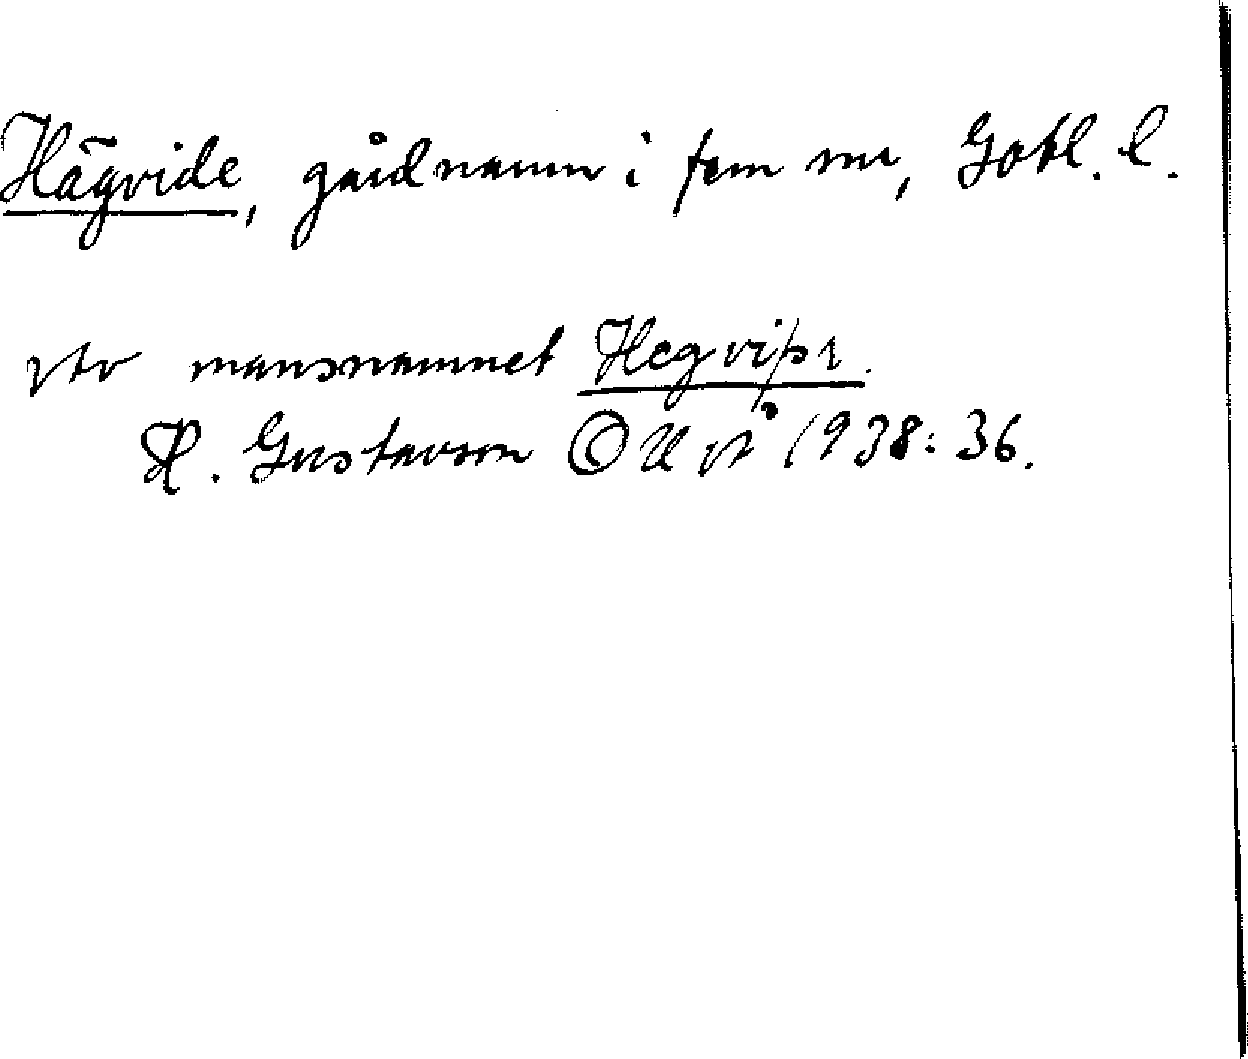 Hägvide, gårdnamn i fem snr, Gotl. l.
mansnamnet Hegviþr.
H. Gustavson 1938: 36.